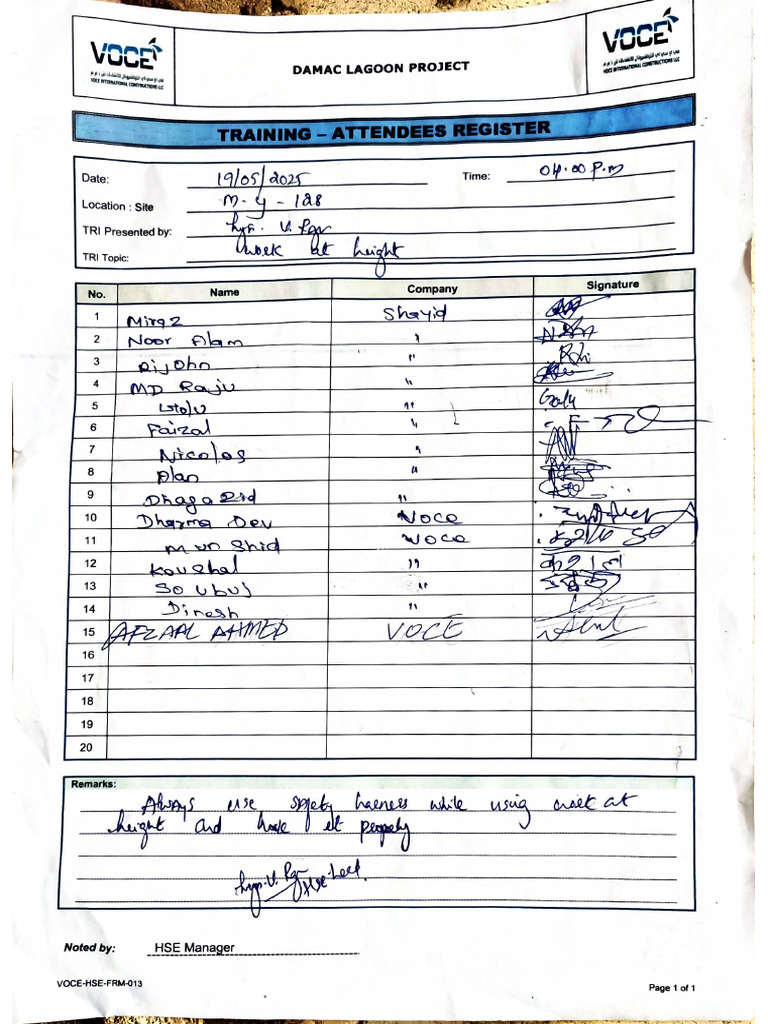 VOCE
VOCE INTERNATIONAL CONSTRUCTIONS LLC
DAMAC LAGOON PROJECT
VOCE
VOCE INTERNATIONAL CONSTRUCTIONS LLC
TRAINING – ATTENDEES REGISTER
Date: 19/05/2025 Time: 04.00 P.M
Location : Site M-y-128
TRI Presented by:
TRI Topic: work at height
No. Name Company Signature
1 Miraz Shayid
2 Noor Alam "
3 Rijohn "
4 MD Raju "
5 "
6 Faizal "
7 Nicolas "
8 Alan "
9 "
10 Dharma Dev VOCE
11 Munshid VOCE
12 Koushal "
13 Soubuj "
14 Dinesh "
15 AFZAAL AHMED VOCE
16
17
18
19
20
Remarks:
Always use safety harness while using work at
height and hook it properly
HSE
Noted by: HSE Manager
VOCE-HSE-FRM-013 Page 1 of 1